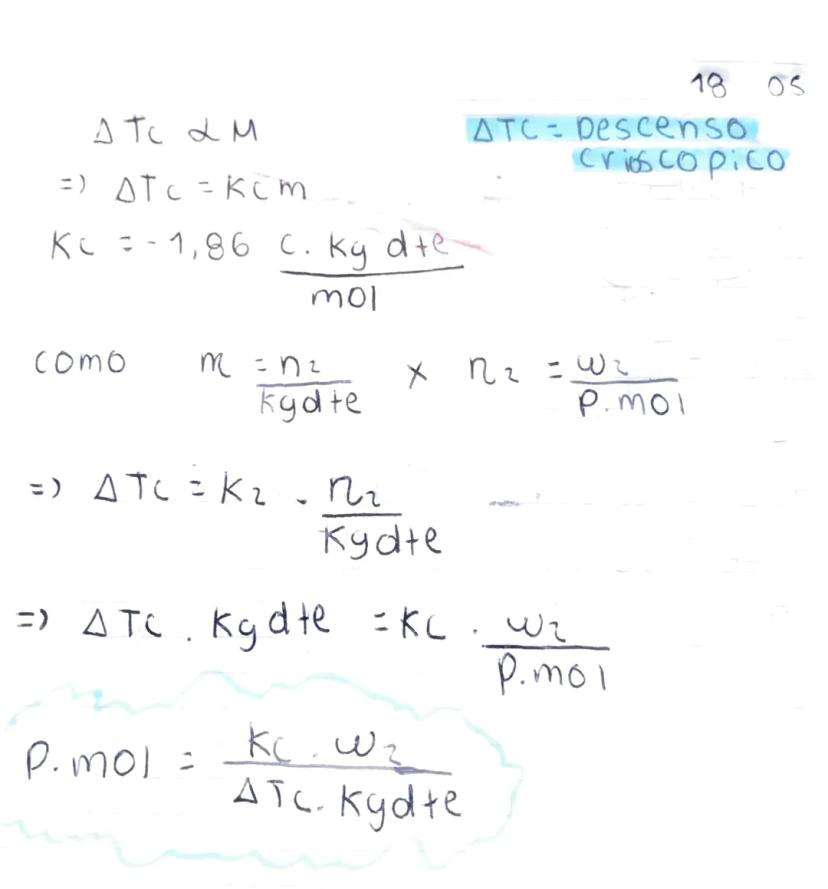 18 05
Δ Tc α M
ΔTC = Descenso
crioscopico
=) ΔTc = Kcm
Kc = -1,86 c. Kg dte
mol
como m = n2
Kgdte
x n2 = w2
P.mol
=) Δ Tc = K2 . n2
Kgdte
=) Δ Tc . Kg dte = Kc . w2
P.mol
P.mol = Kc . w2
Δ Tc. Kgdte